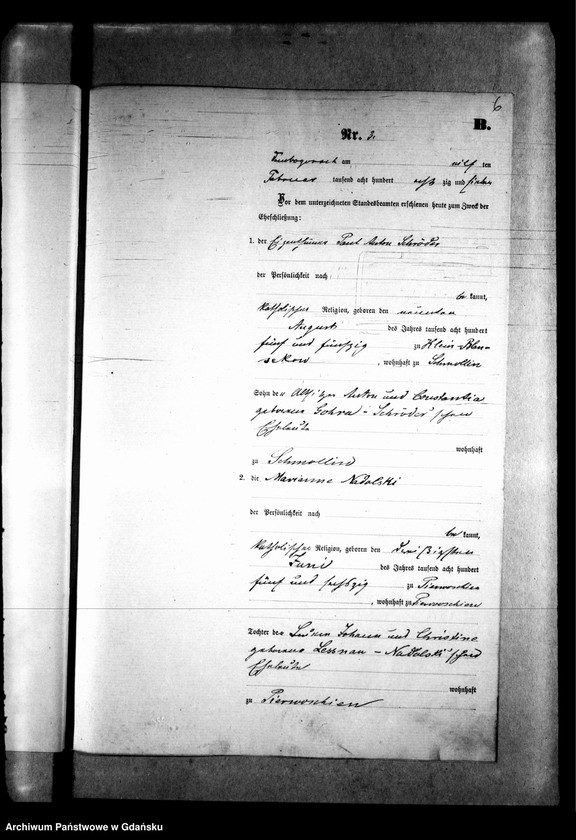 6
B.
Nr. 3.
am eilf ten
Februar tausend acht hundert acht zig und sieben
Vor dem unterzeichneten Standesbeamten erschienen heute zum Zweck der
Eheschließung:
1. der Eigenthümer Paul Anton Schröder
der Persönlichkeit nach
be kannt,
katholischer Religion, geboren den neunten
August des Jahres tausend acht hundert
fünf und fünfzig zu Klein Blan-
sekow, wohnhaft zu Schmollin
Sohn der Anton und Constantia
geborene Gohra - Schröder'schen
Eheleute
wohnhaft
zu Schmollin
2. die Marianne Nadolski
der Persönlichkeit nach
be kannt,
katholischer Religion, geboren den dreißigsten
Juni des Jahres tausend acht hundert
fünf und sechszig zu Pierwoschin
, wohnhaft zu Pierwoschin
Tochter der Johann und Christine
geborene Lessnau - Nadolski'schen
Eheleute
wohnhaft
zu Pierwoschin
Archiwum Państwowe w Gdańsku